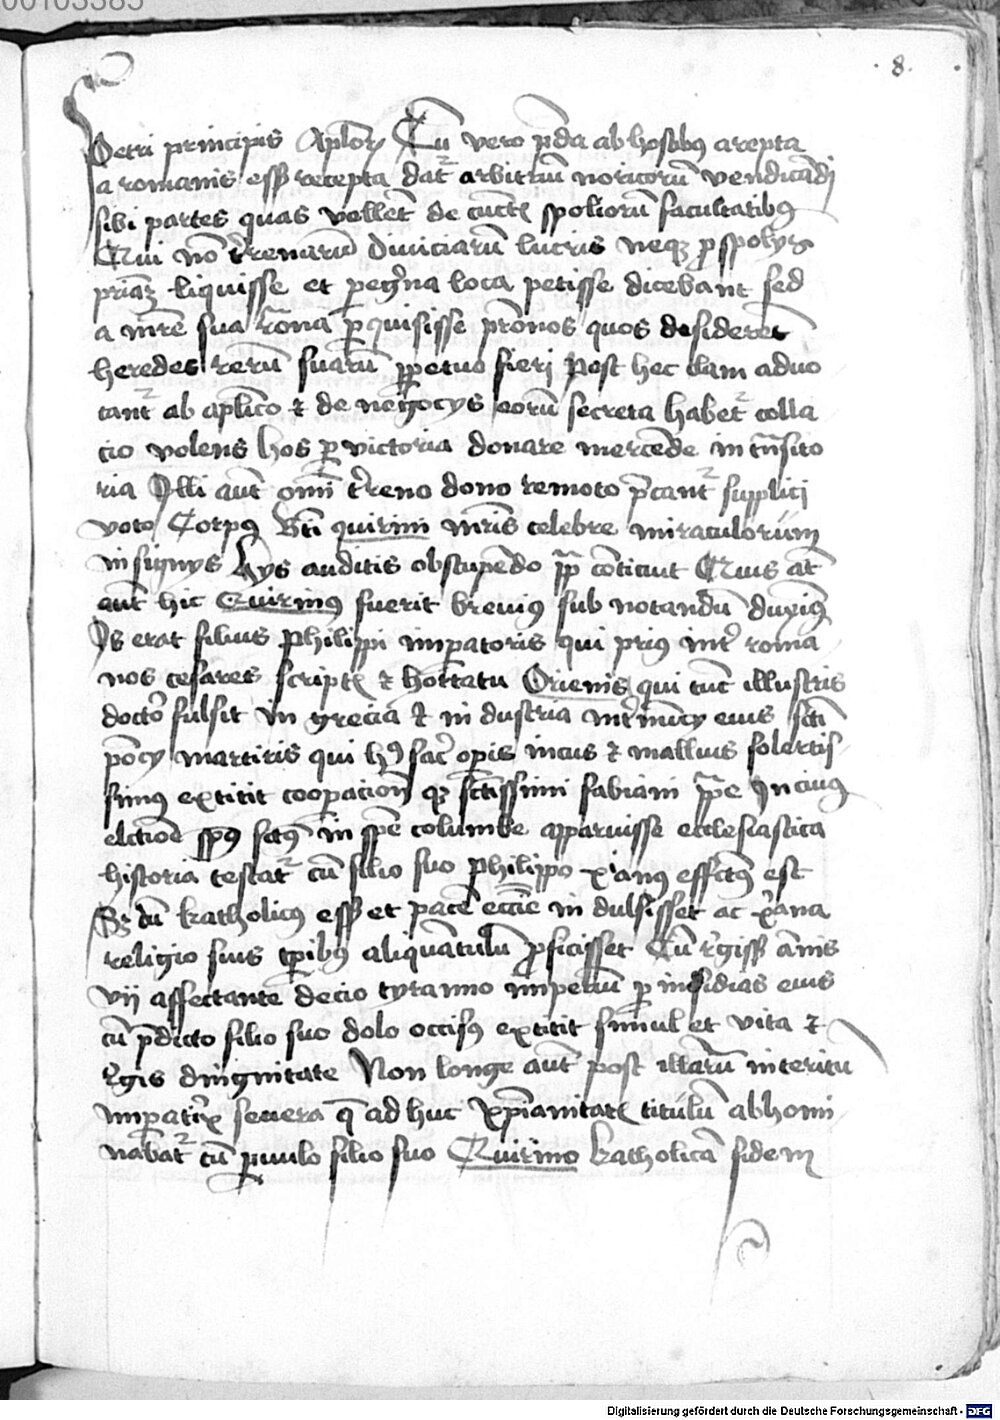 00103385
8.
Petri principis Aplor Cu vero pda ab hostibus arepta
a romanis esse recepta dat arbitriu noricoru vendicadi
sibi partes quas vellet de cuctis spolioru facultatibus
Qui no trenaru diviciaru lucris neqz p spolys
priaz liquisse et pegrna loca petisse dicebant sed
a mre sua roma pquisisse pronos quos desideret
heredes reru suaru ppetuo fieri Post hec clam advo
tant ab aplico et de negocys eoru secreta habet colla
cio volens hos p victoria donare mercede in tnsito
ria Illi aut omi treno dono remoto pcant supplici
voto Corpus bti quirini mris celebre miraculorum
insignys hys auditis obstupedo pp coticuit Cuius at
aut hic Quirinus fuerit brevius sub notandu duximus
Is erat filius Philippi impatoris qui prius intr roma
nos cesares scriptis et hortatu Orienis qui tuc illustris
doctor fulsit in grecia et in dustria intrinucy eius scti
pocy martiris qui h9 sacr opis incus et malluis solertis
simus extitit coopacion qz sctissimi fabiani ppe In cuius
elctioe spus sctus in spe columbe apparuisse ecclesiastica
historia testat cu filio suo philippo xianus effctus est
Sz du katholicus esset et pace eccie in dulsisset ac xana
religio suis tpibus aliquatulu pficisset Cu rgisset anis
vii affectante decio tyranno imperiu p insidias eius
cu pdicto filio suo dolo occisus extitit simul et vita et
rgis dingnitate Non longe aut post illaru interitu
impatrix severa q ad huc xpianitatis titulu abhomi
nabat cu pvulo filio suo Quirino katholica fidem
Digitalisierung gefördert durch die Deutsche Forschungsgemeinschaft - DFG